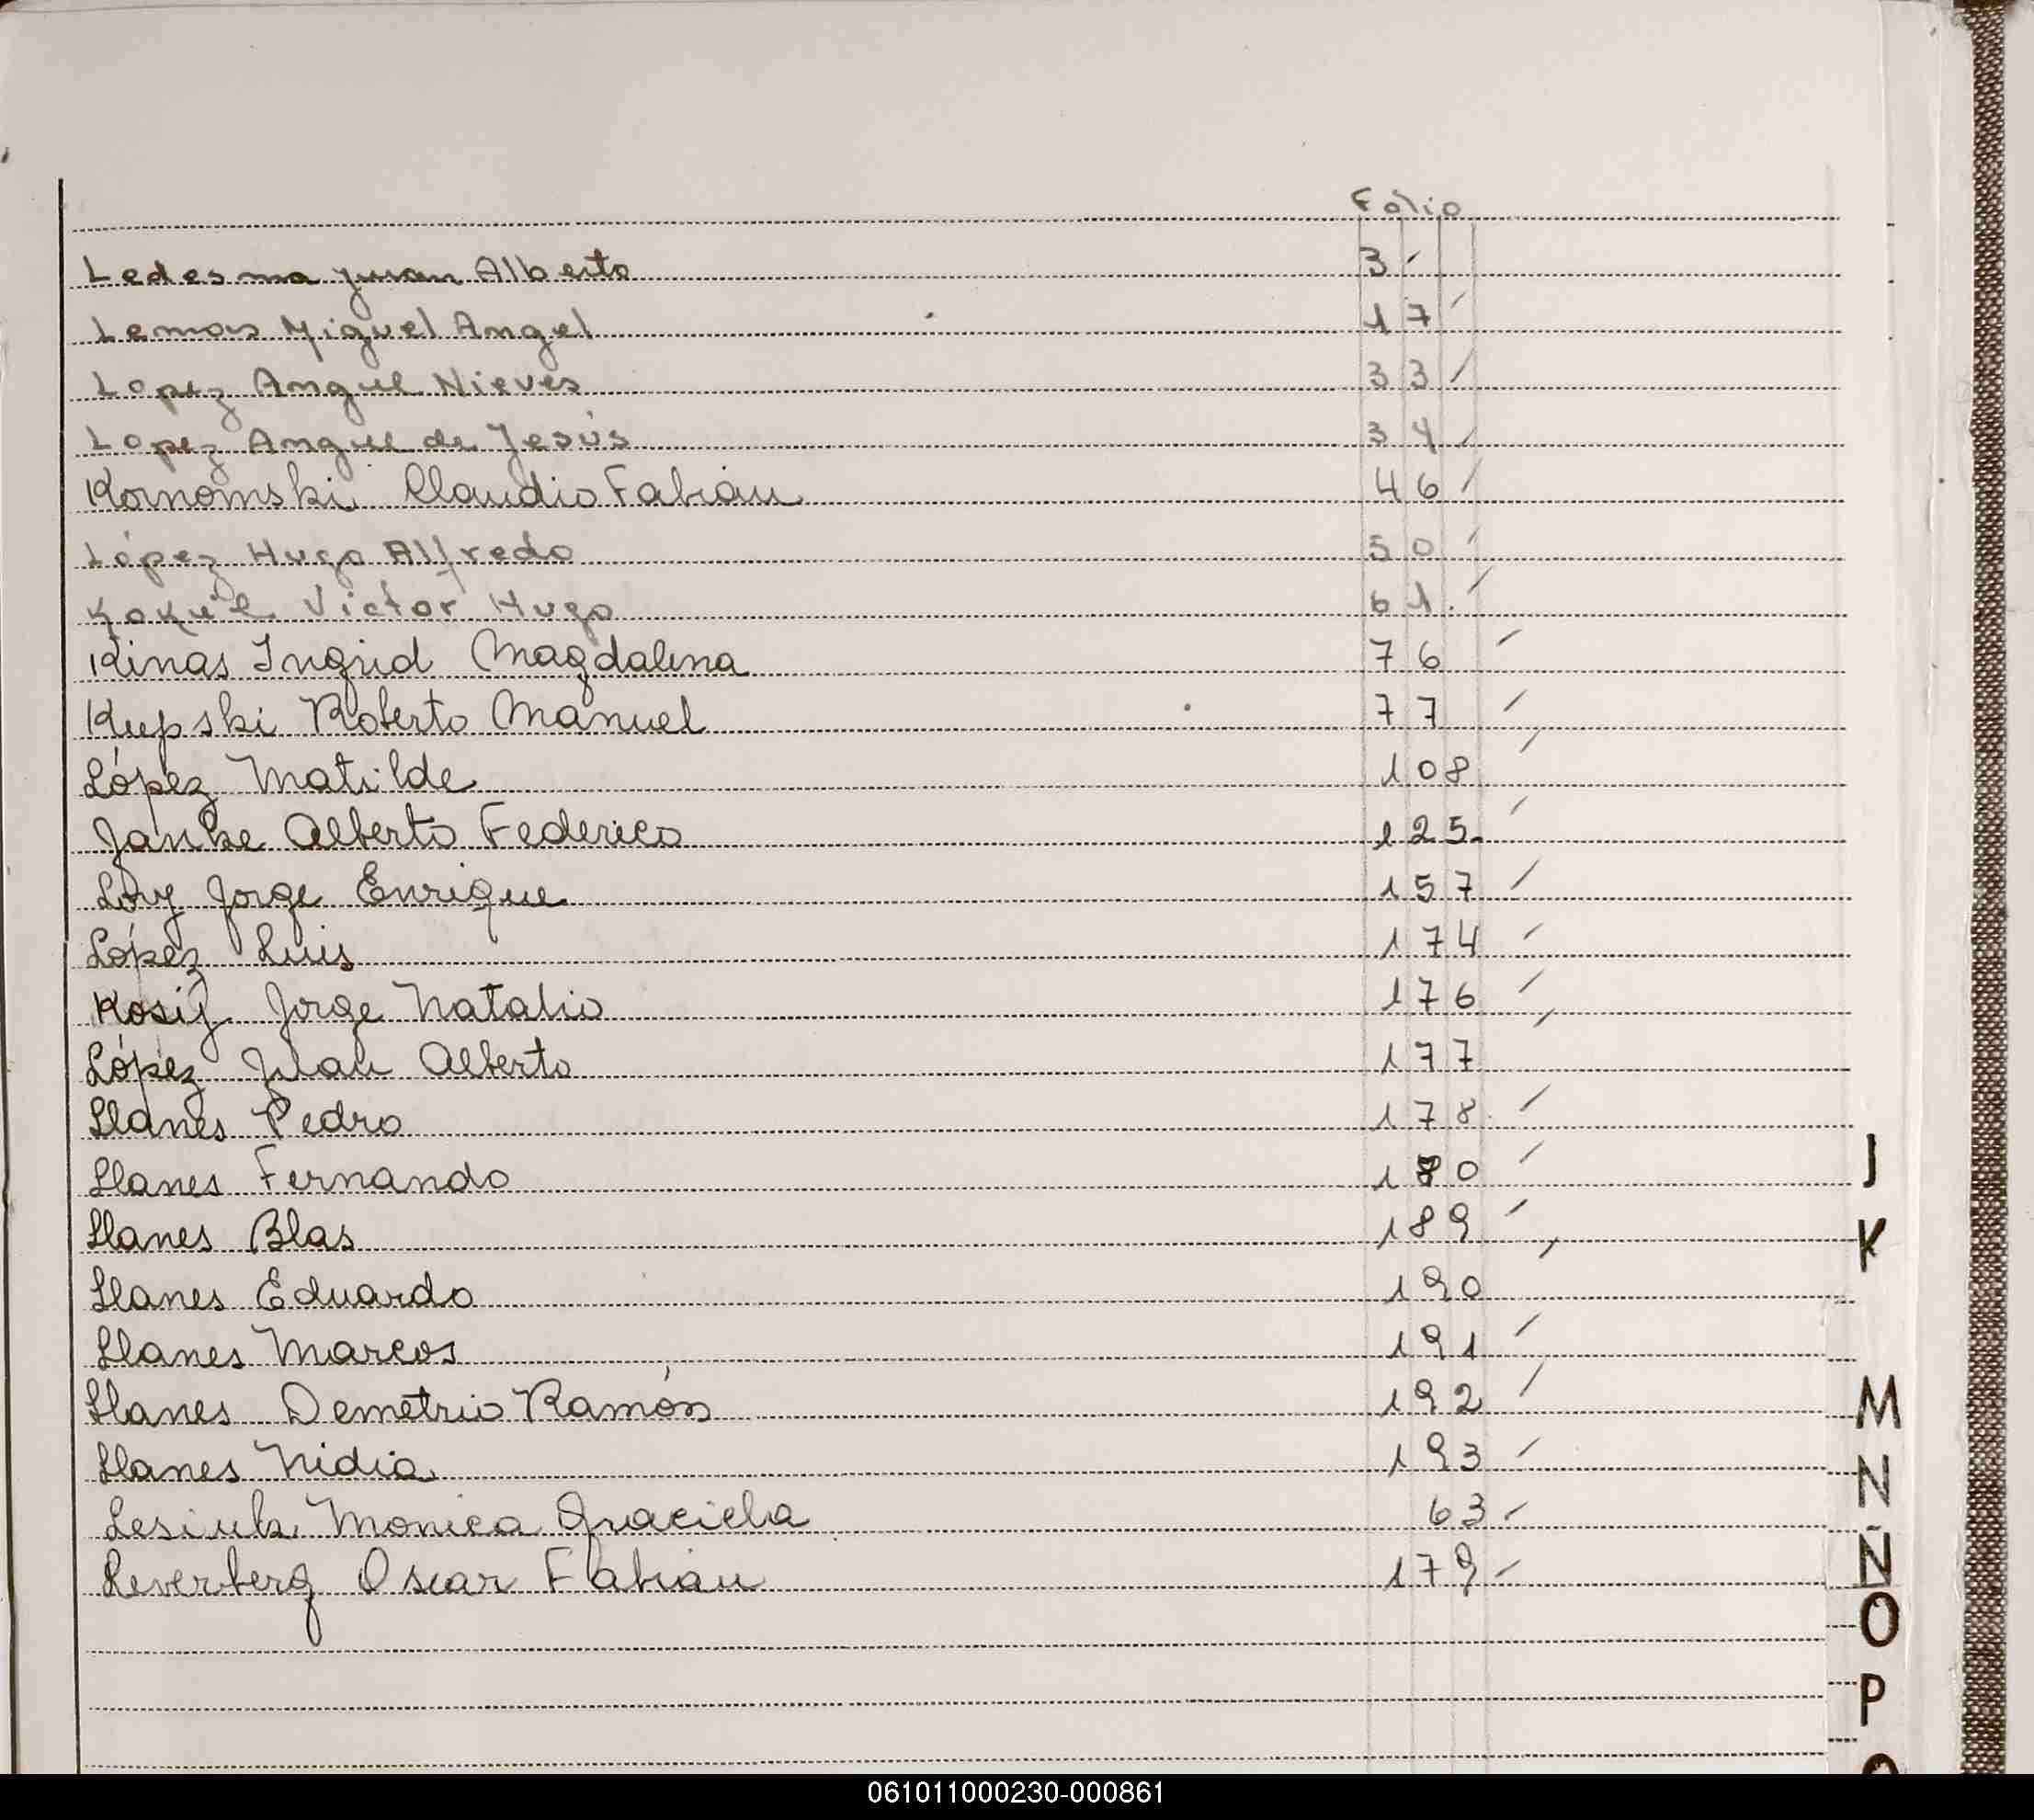 Folio
Ledesma Juan Alberto 3
Lemos Miguel Angel 17
Lopez Angel Nieves 33
Lopez Angel de Jesús 34
Kornomski Claudio Fabián 46
López Hugo Alfredo 50
Victor Hugo 61
Kinas Ingrid Magdalena 76
Kupski Roberto Manuel 77
López Matilde 108
Janke Alberto Federico 125
Lory Jorge Enrique 157
López Luis 174
Kosij Jorge Natalio 176
López Juan Alberto 177
Llanes Pedro 178
Llanes Fernando 180
Llanes Blas 189
Llanes Eduardo 190
Llanes Marcos 191
Llanes Demetrio Ramón 192
Llanes Nidia 193
Lesiuk Monica Graciela 63
Leverberg Oscar Fabián 179
J
K
M
N
Ñ
O
P
061011000230-000861